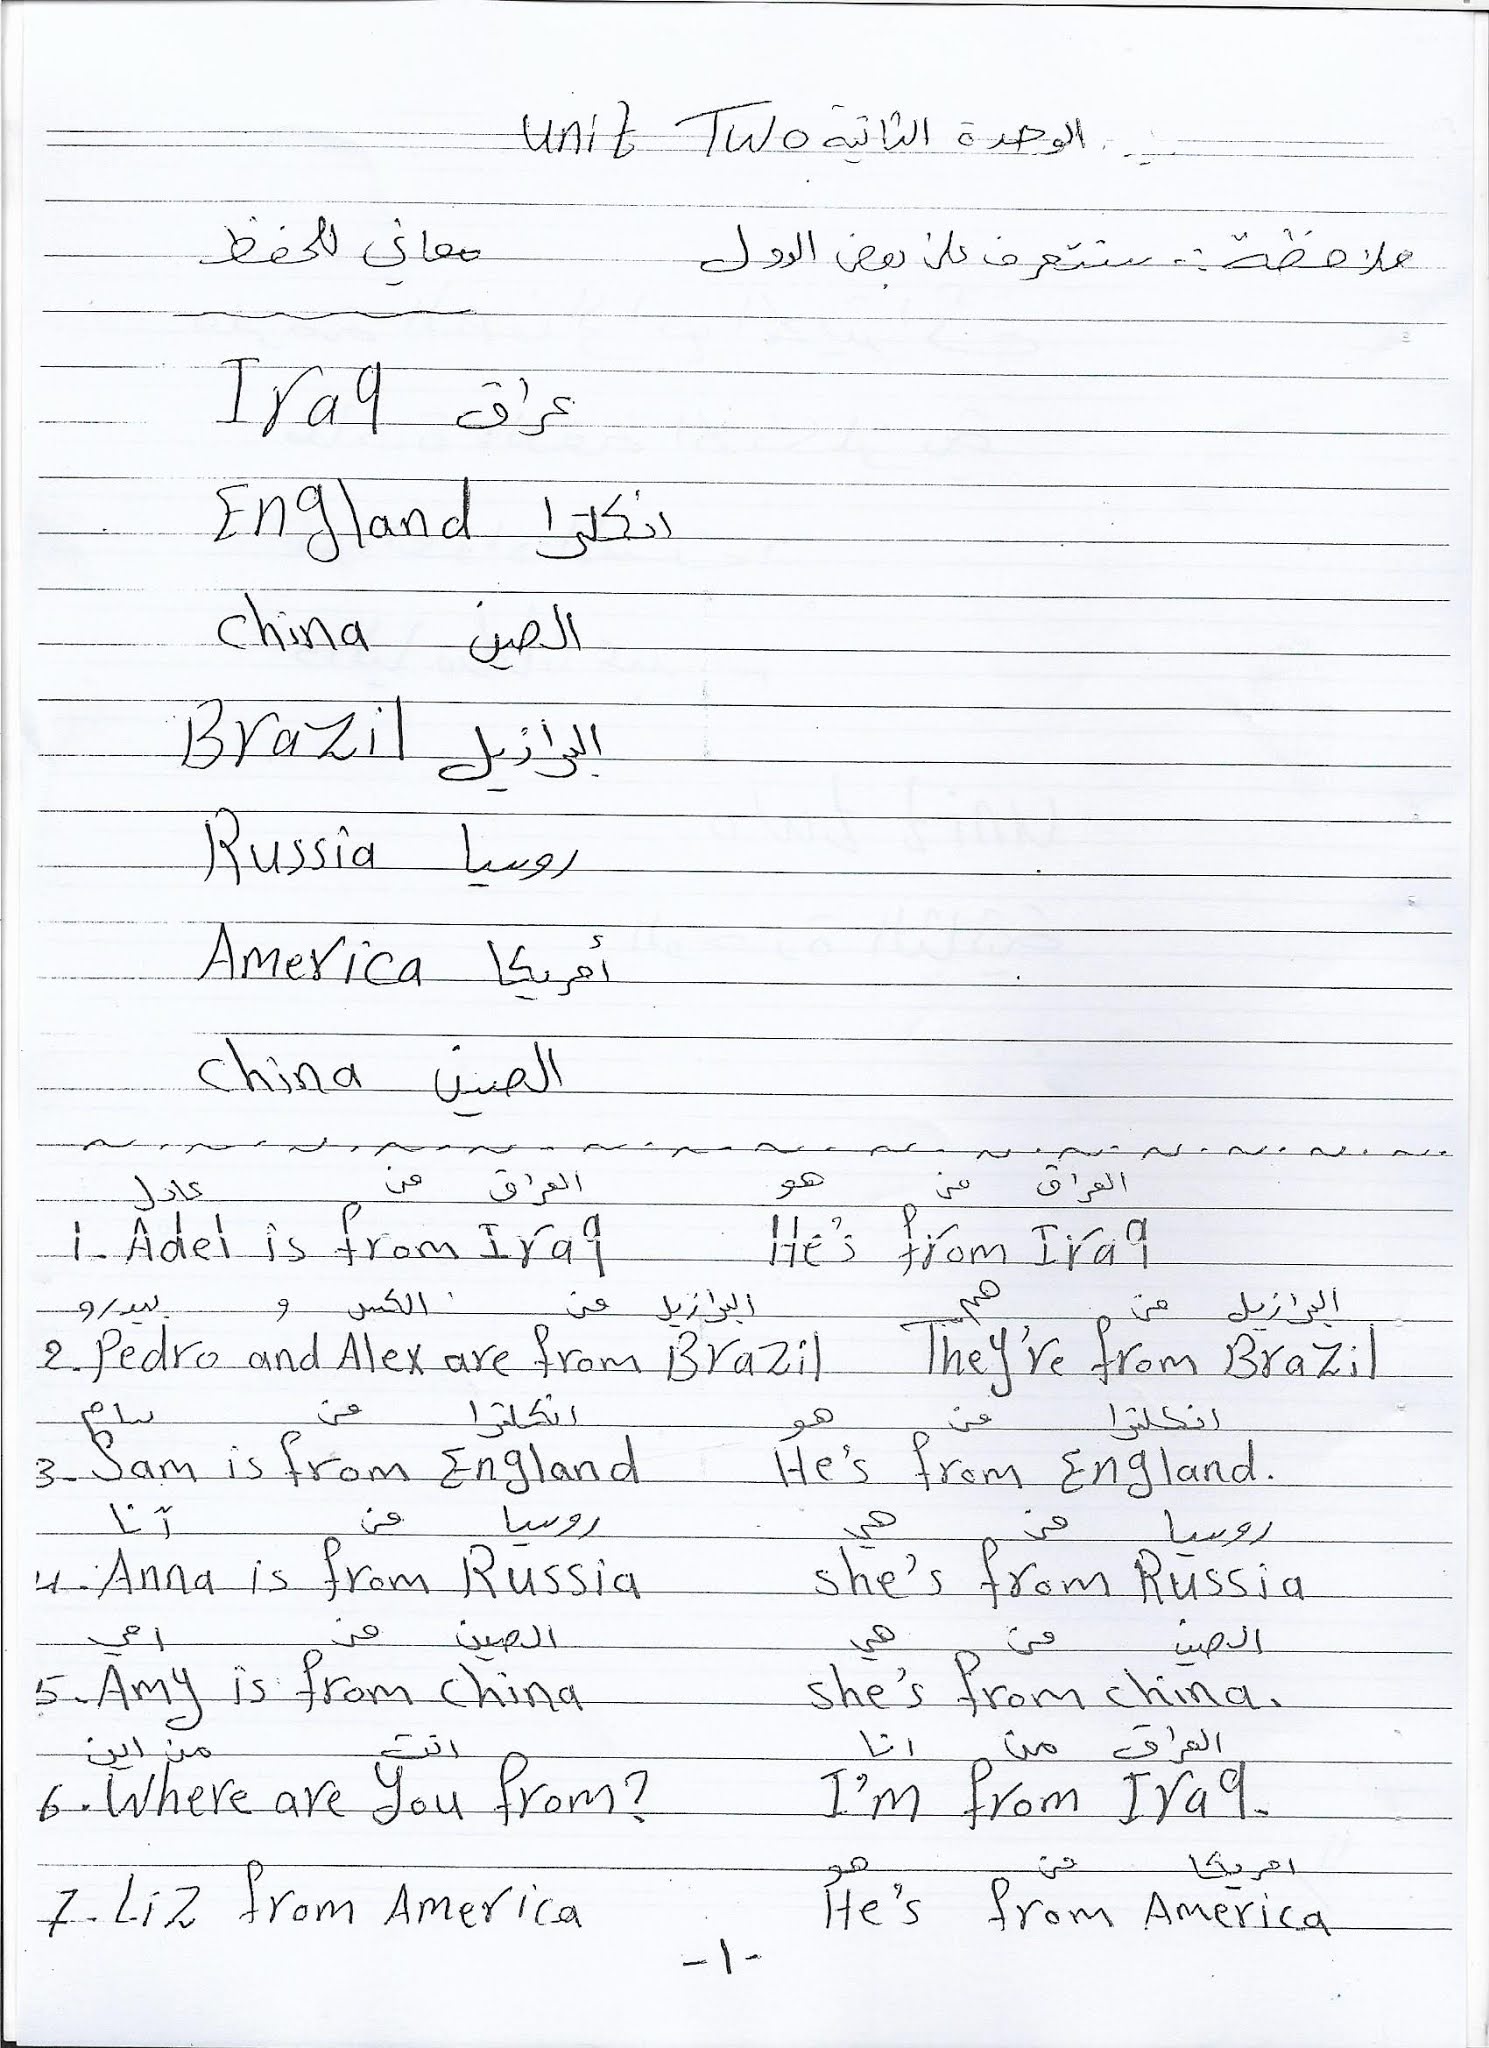 Unit Two الوحدة الثانية
ملاحظة :- سنتعرف على بعض الدول معاني للحفظ
Iraq عراق
England انكلترا
china الصين
Brazil البرازيل
Russia روسيا
America أمريكا
china الصين
عادل من العراق هو من العراق
1. Adel is from Iraq He's from Iraq
بيدرو و الكس من البرازيل هم من البرازيل
2. Pedro and Alex are from Brazil They're from Brazil
سام من انكلترا هو من انكلترا
3. Sam is from England He's from England.
آنا من روسيا هي من روسيا
4. Anna is from Russia she's from Russia
امي من الصين هي من الصين
5. Amy is from china she's from china.
من اين انت انا من العراق
6. Where are you from? I'm from Iraq.
هو من امريكا
7. Liz from America He's from America
-١-